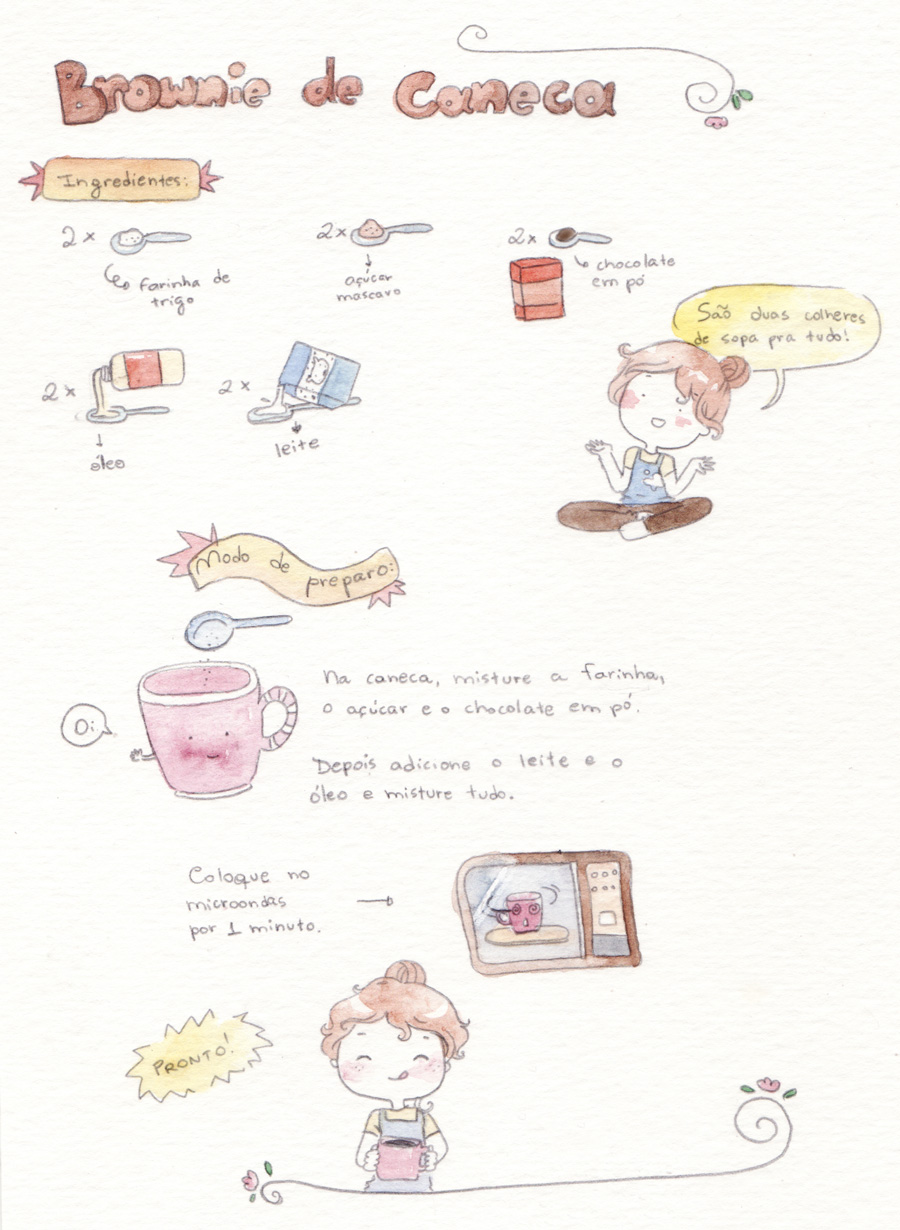 Brownie de Caneca
Ingredientes:
2 x
farinha de
trigo
2 x
açúcar
mascavo
2 x
chocolate
em pó
São duas colheres
de sopa pra tudo!
2 x
óleo
2 x
leite
Modo de
preparo:
Oi
Na caneca, misture a farinha,
o açúcar e o chocolate em pó.
Depois adicione o leite e o
óleo e misture tudo.
Coloque no
microondas
por 1 minuto.
PRONTO!